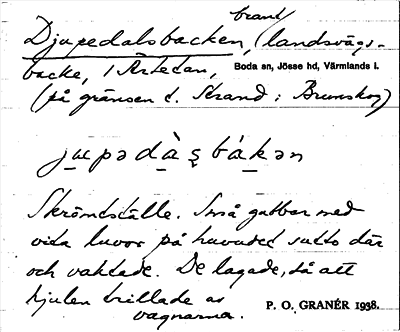 brant
Djupedalsbacken, (landsvägs-
backe, i Ärtedan,
Boda sn, Jösse hd, Värmlands l.
(på gränsen t. Strand i Brunskog)
Skrömtställe. Små gubbar med
vita luvor på huvudet sutto där
och vaktade. De lagade, så att
hjulen trillade av
vagnarna.
P. O. GRANÉR 1938.